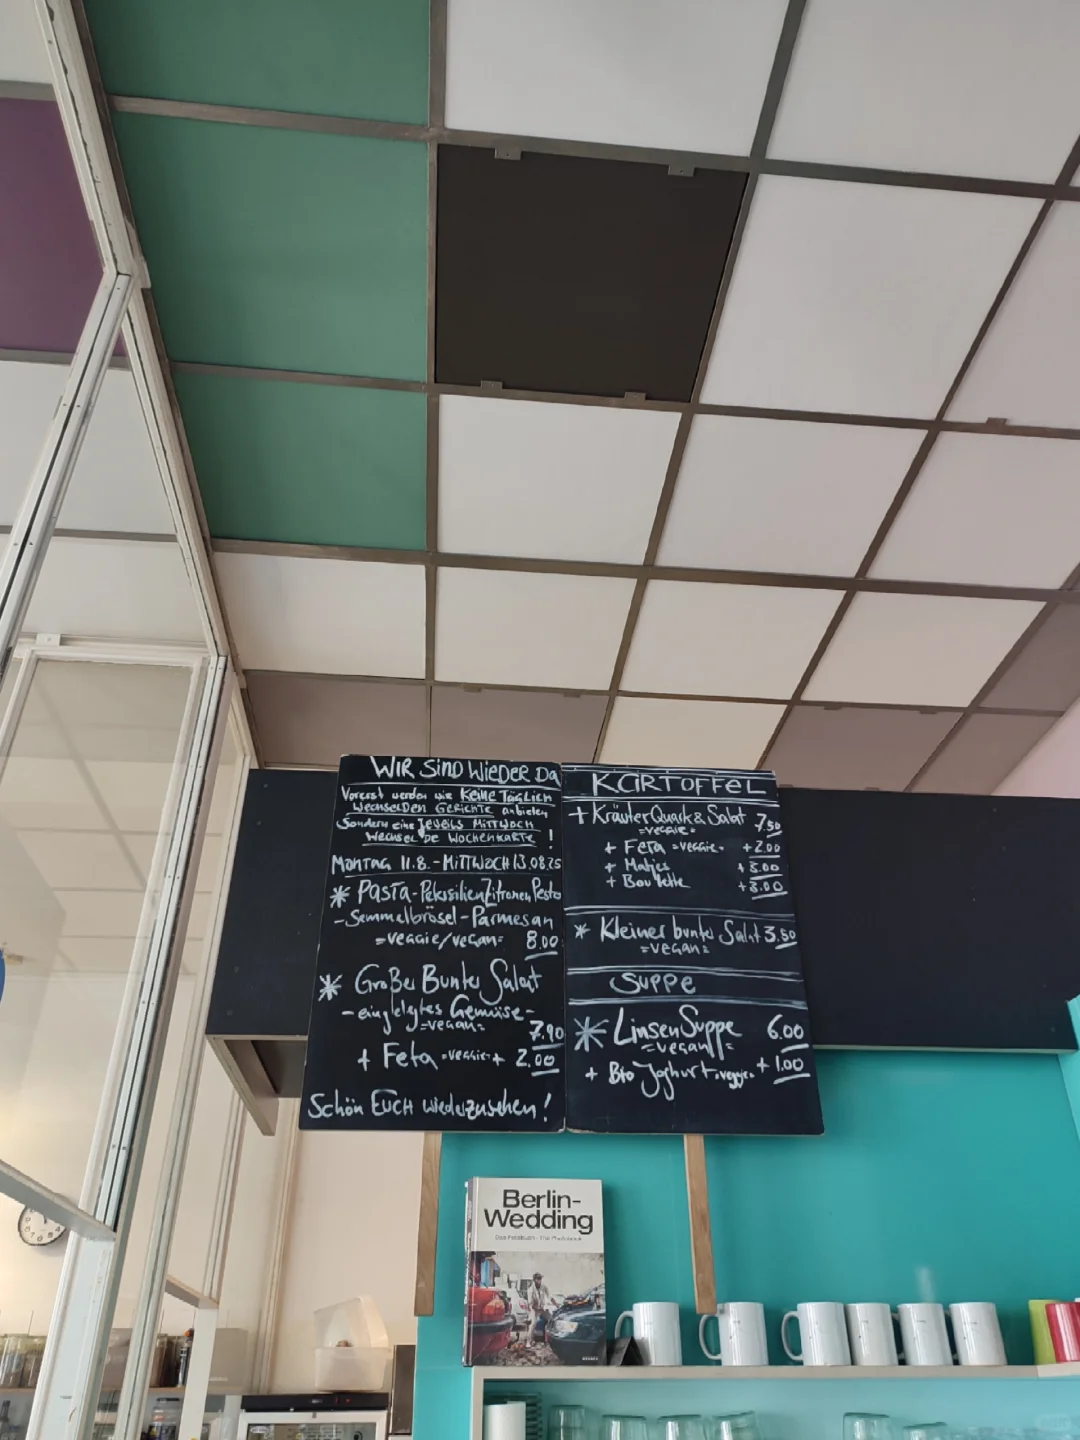 WIR SIND WIEDER DA
Vorerst werden wir KEINE TÄGLICH
WECHSELNDEN GERICHTE anbieten
Sondern eine JEWEILS MITTWOCH
WECHSELNDE WOCHENKARTE !
MONTAG 11.8. - MITTWOCH 13.08.25
* PASTA-PetersilienZitronenPesto
- Semmelbrösel - Parmesan
=veggie/vegan= 8.00
* Großer Bunter Salat
- eingelegtes Gemüse -
=vegan= 7.90
+ Feta =veggie= + 2.00
Schön EUCH wiederzusehen!
KARTOFFEL
+ KräuterQuark & Salat 7.50
=veggie=
+ Feta =veggie= +2.00
+ Matjes +3.00
+ Boulette +3.00
* Kleiner bunter Salat 3.50
=vegan=
Suppe
* LinsenSuppe 6.00
=vegan=
+ Bio Joghurt =veggie= + 1.00
Berlin-
Wedding
Das Fotobuch · The Photobook